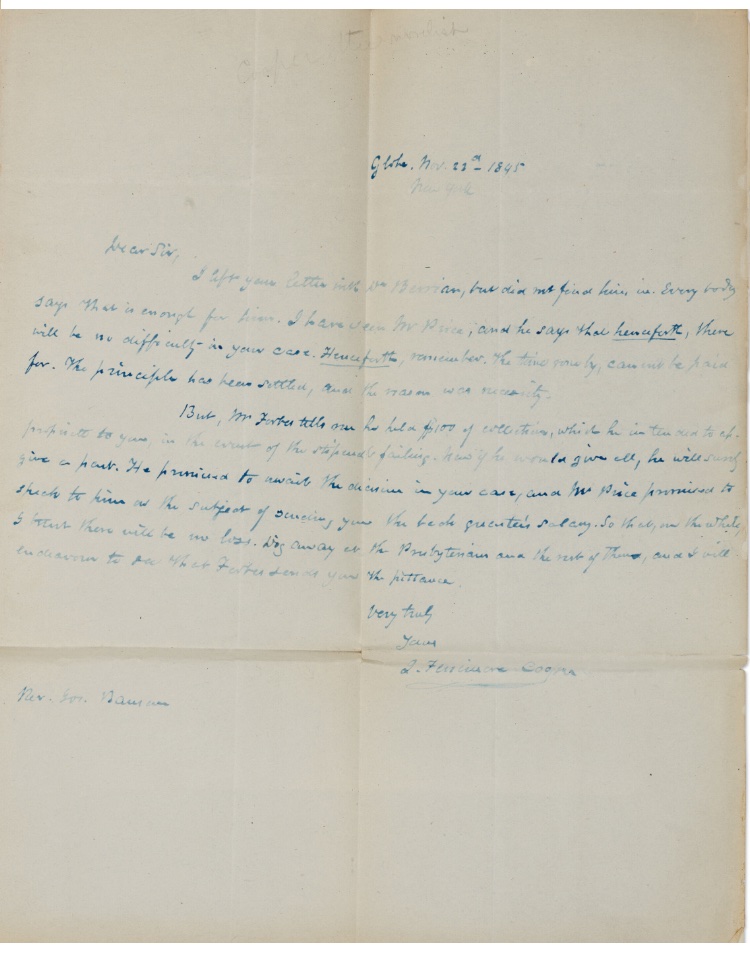 Cooper
Globe. Nov. 22nd - 1845
New York
Dear Sir,
I left your letter with Dr Berrian, but did not find him in. Every body
says that is enough for him. I have seen Mr Price, and he says that henceforth, there
will be no difficulty in your case. Henceforth, remember. The time gone by, cannot be paid
for. The principle has been settled, and the reason was necessity.
But, Mr Forbes tells me he held $100 of collections, which he intended to ap-
propriate to you, in the event of the stipend failing. Now if he would give all, he will surely
give a part. He promised to await the decision in your case, and Mr Price promised to
speak to him on the subject of sending you the back quarter's salary. So that, on the whole,
I trust there will be no loss. Dig away at the Presbyterians and the rest of them, and I will
endeavour to see that Forbes sends you the pittance.
Very truly
Yours
J. Fenimore Cooper
Rev. Jos. Ransom